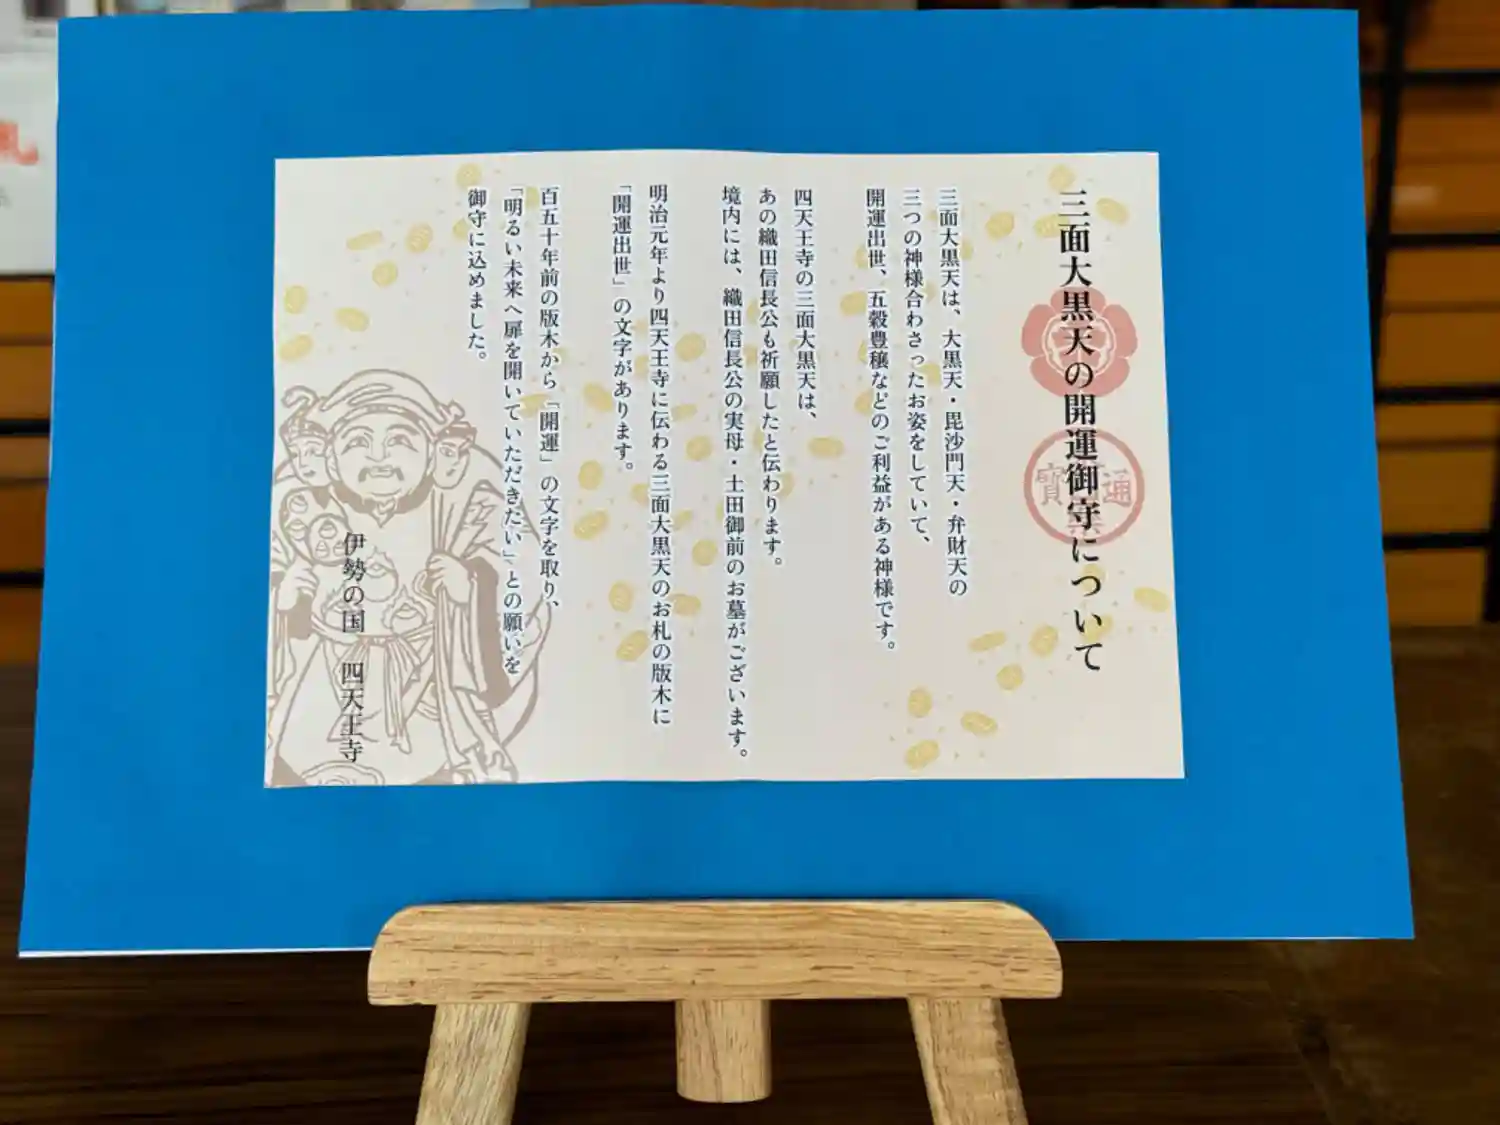 三面大黒天の開運御守について
三面大黒天は、大黒天・毘沙門天・弁財天の
三つの神様合わさったお姿をしていて、
開運出世、五穀豊穣などのご利益がある神様です。
四天王寺の三面大黒天は、
あの織田信長公も祈願したと伝わります。
境内には、織田信長公の実母・土田御前のお墓がございます。
明治元年より四天王寺に伝わる三面大黒天のお札の版木に
「開運出世」の文字があります。
百五十年前の版木から「開運」の文字を取り、
「明るい未来へ扉を開いていただきたい」との願いを
御守に込めました。
伊勢の国 四天王寺